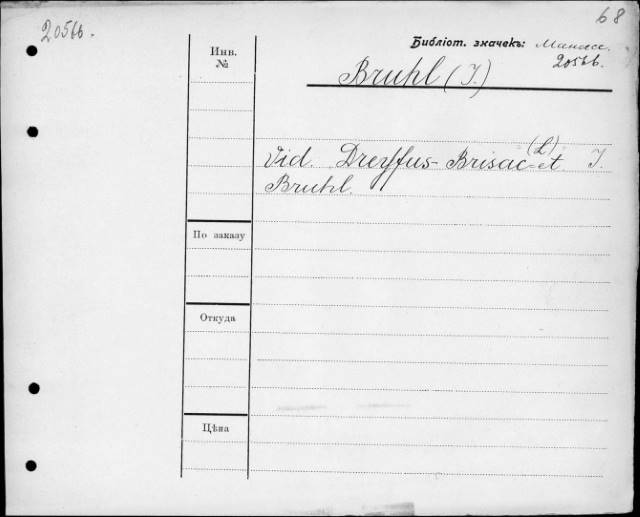 68
20566.
Библіот. значекъ: Манасс.
20566.
Инв.
№
Bruhl (I.)
Vid. Dreyffus-Brisac (L) et I.
Bruhl.
По заказу
Откуда
Цѣна